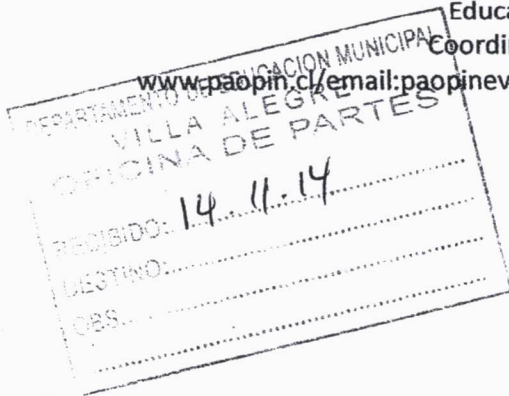 Educa
Coordin
www.paopin.cl/email:paopinev
DEPARTAMENTO DE EDUCACION MUNICIPAL
VILLA ALEGRE
OFICINA DE PARTES
RECIBIDO: 14.11.14
DESTINO:
OBS.